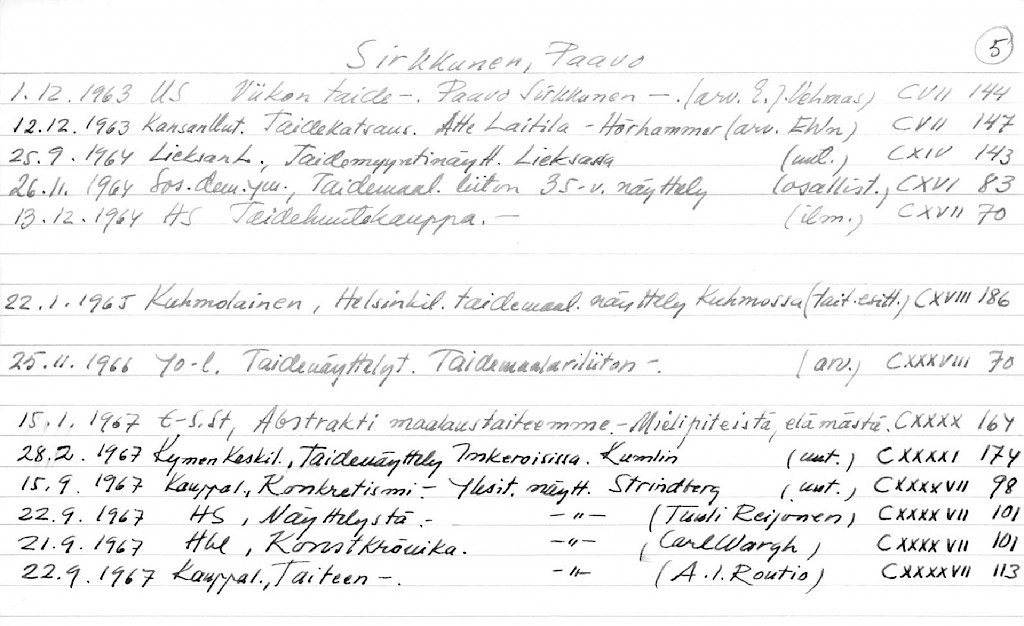 5
Sirkkunen, Paavo
1.12.1963 US Viikon taide -. Paavo Sirkkunen -. (arv. E.J. Vehmas) CVII 144
12.12.1963 Kansan Uut. Taidekatsaus. Atte Laitila - Hörhammer (arv. EWn) CVII 147
25.9.1964 Lieksan L., Taidemyyntinäytt. Lieksassa (uut.) CXIV 143
26.11.1964 Sos.dem.ym., Taidemaal. liiton 35-v. näyttely (osallist.) CXVI 83
13.12.1964 HS Taidehuutokauppa. - (ilm.) CXVII 70
22.1.1965 Kuhmolainen, Helsinkil. taidemaal. näyttely Kuhmossa (tait. esitt.) CXVIII 186
25.11.1966 Yo-l. Taidenäyttelyt. Taidemaalariliiton -. (arv.) CXXXVIII 70
15.1.1967 E-S.St, Abstrakti maalaustaiteemme. - Mielipiteistä, elämästä. CXXXX 164
28.2.1967 Kymen Keskil., Taidenäyttely Inkeroisissa. Kumlin (uut.) CXXXXI 174
15.9.1967 Kauppal., Konkretismi - Yksit. näytt. Strindberg (uut.) CXXXXVII 98
22.9.1967 HS, Näyttelystä. - -"- (Tuuli Reijonen) CXXXXVII 101
21.9.1967 Hbl, Konstkrönika. -"- (Carl Wargh) CXXXXVII 101
22.9.1967 Kauppal., Taiteen -. -"- (A.I. Routio) CXXXXVII 113